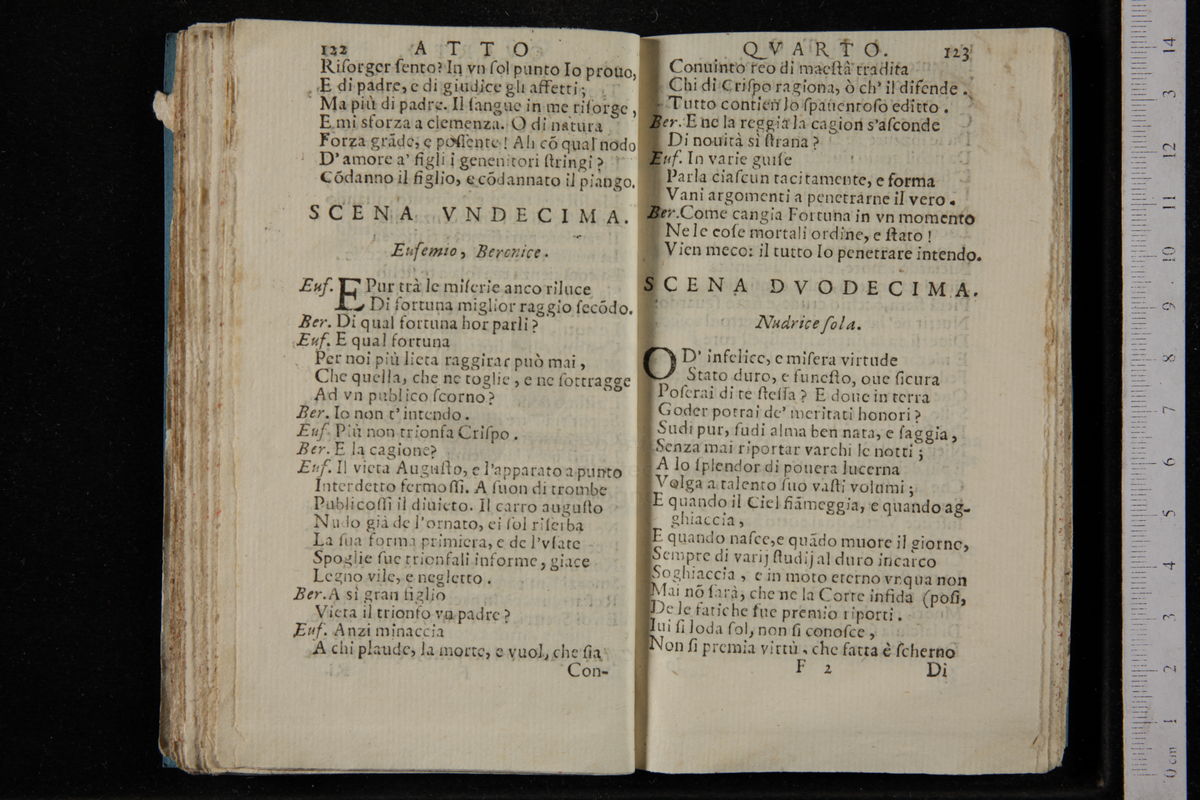 122 ATTO
Riſorger ſento? In vn ſol punto Io prouo,
E di padre, e di giudice gli affetti;
Ma più di padre. Il ſangue in me riſorge,
E mi sforza a clemenza. O di natura
Forza grãde, e poſſente! Ah cõ qual nodo
D' amore a' figli i genenitori ſtringi?
Cõdanno il figlio, e cõdannato il piango.
SCENA VNDECIMA.
Eufemio, Berenice.
Euf. E Pur trà le miſerie anco riluce
Di fortuna miglior raggio ſecõdo.
Ber. Di qual fortuna hor parli?
Euf. E qual fortuna
Per noi più lieta raggirar può mai,
Che quella, che ne toglie, e ne ſottragge
Ad vn publico ſcorno?
Ber. Io non t' intendo.
Euf. Più non trionfa Criſpo.
Ber. E la cagione?
Euf. Il vieta Auguſto, e l'apparato a punto
Interdetto fermoſſi. A ſuon di trombe
Publicoſſi il diuieto. Il carro auguſto
Nudo già de l'ornato, ei ſol riſerba
La ſua forma primiera, e de l'vſate
Spoglie ſue trionfali informe, giace
Legno vile, e negletto.
Ber. A sì gran figlio
Vieta il trionfo vn padre?
Euf. Anzi minaccia
A chi plaude, la morte, e vuol, che ſia
Con-
QVARTO. 123
Conuinto reo di maeſtà tradita
Chi di Criſpo ragiona, ò ch' il difende.
Tutto contien lo ſpauentoſo editto.
Ber. E ne la reggia la cagion s'aſconde
Di nouità sì ſtrana?
Euf. In varie guiſe
Parla ciaſcun tacitamente, e forma
Vani argomenti a penetrarne il vero.
Ber. Come cangia Fortuna in vn momento
Ne le coſe mortali ordine, e ſtato!
Vien meco: il tutto Io penetrare intendo.
SCENA DVODECIMA.
Nudrice ſola.
O D' infelice, e miſera virtude
Stato duro, e funeſto, oue ſicura
Poſerai di te ſteſſa? E doue in terra
Goder potrai de' meritati honori?
Sudi pur, ſudi alma ben nata, e ſaggia,
Senza mai riportar varchi le notti;
A lo ſplendor di pouera lucerna
Volga a talento ſuo vaſti volumi;
E quando il Ciel fiãmeggia, e quando ag-
ghiaccia,
E quando naſce, e quãdo muore il giorno,
Sempre di varij ſtudij al duro incarco
Soghiaccia, e in moto eterno vnqua non
Mai nõ ſarà, che ne la Corte infida (poſi,
De le fatiche ſue premio riporti.
Iui ſi loda ſol, non ſi conoſce,
Non ſi premia virtù, che fatta è ſcherno
F 2 Di
0 cm 1 2 3 4 5 6 7 8 9 10 11 12 13 14